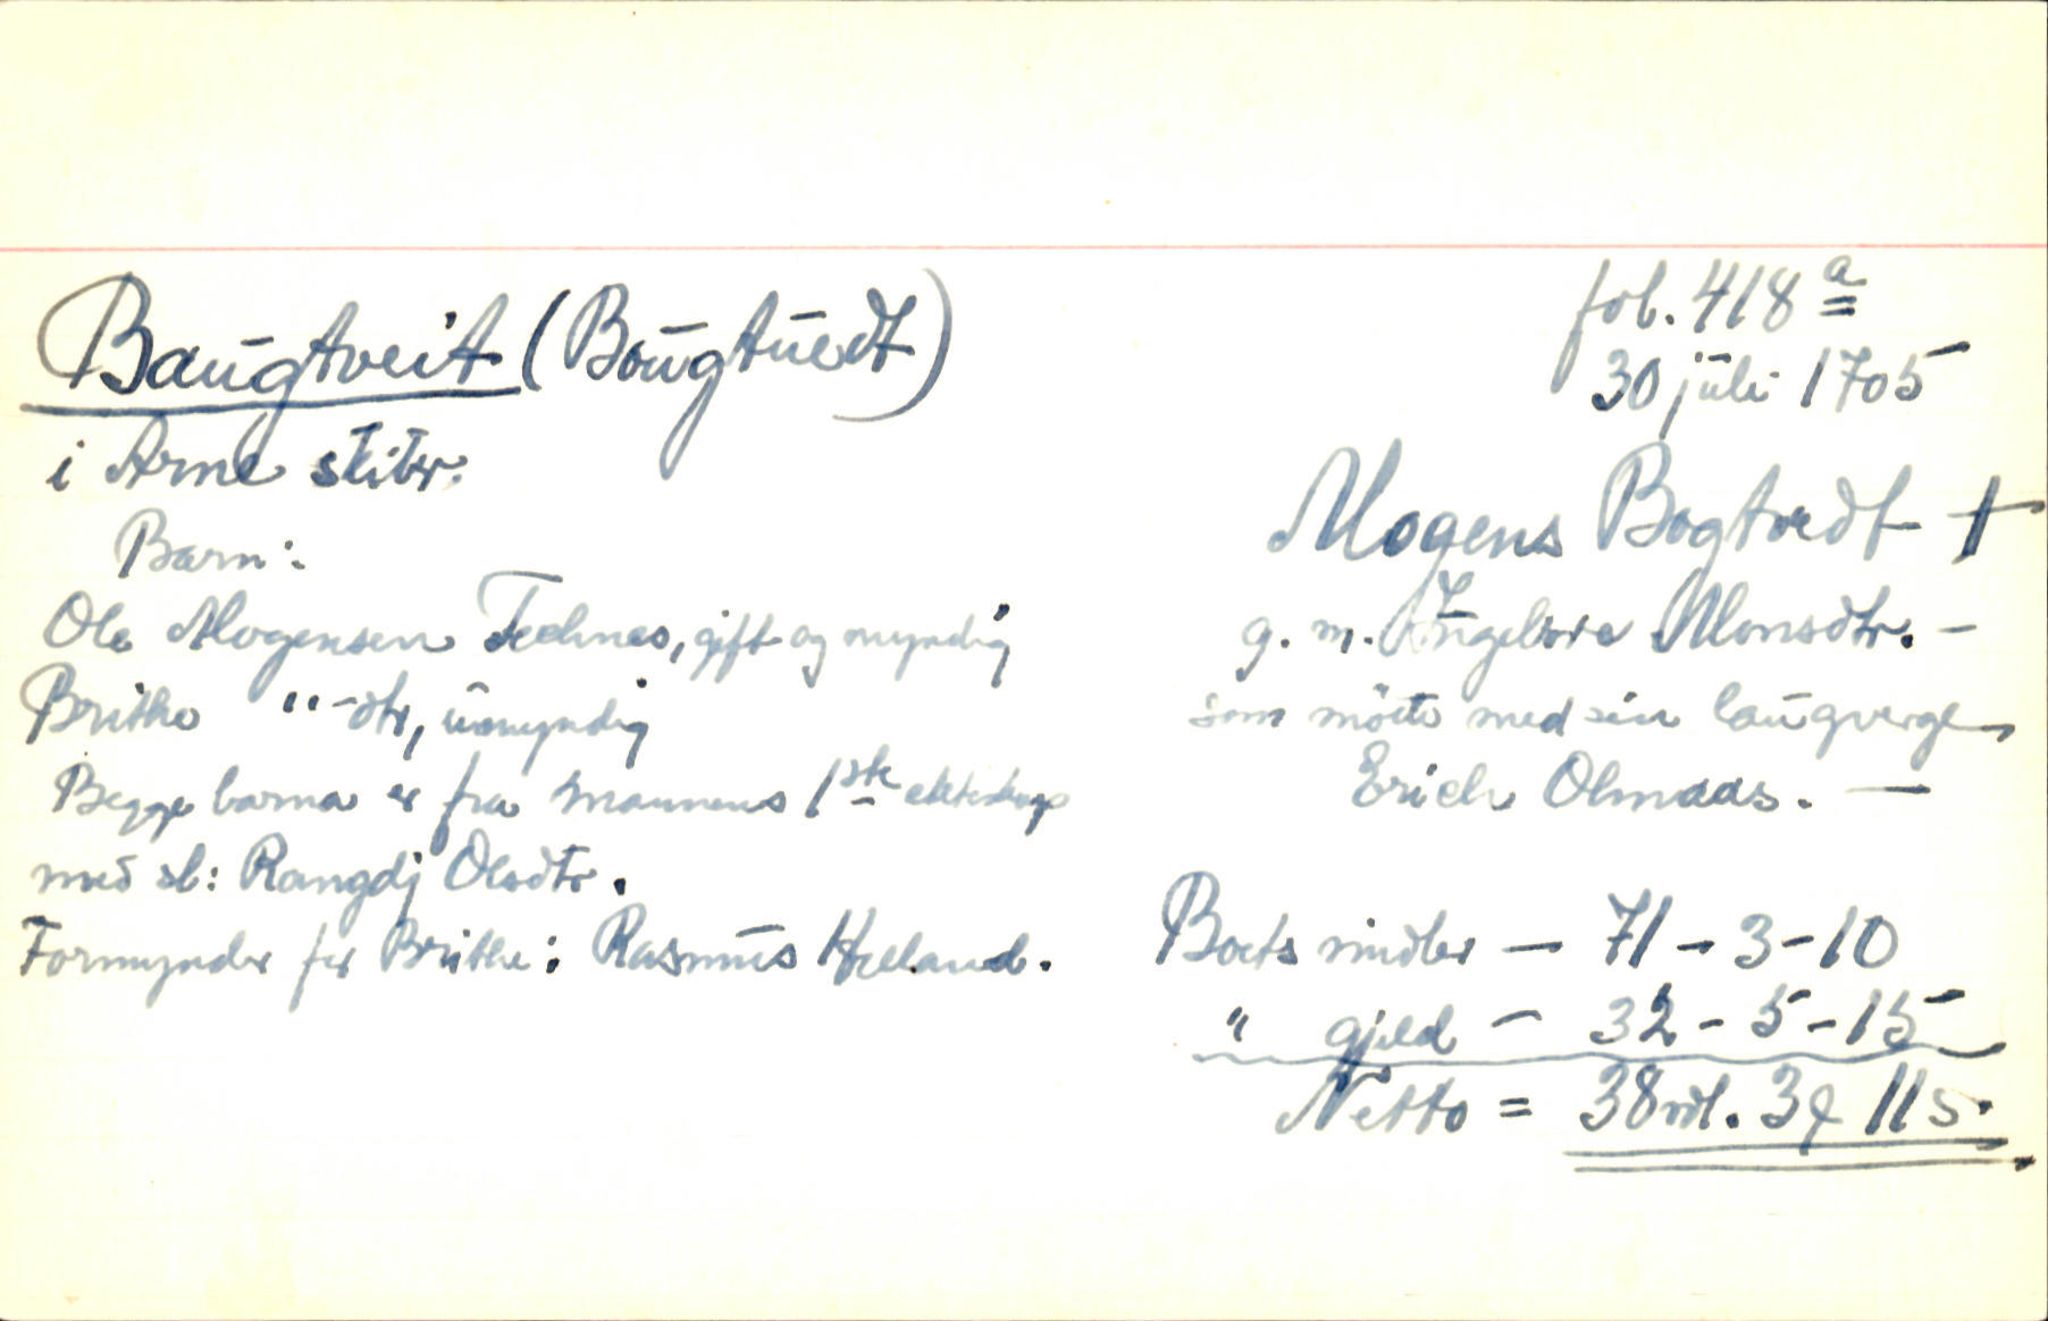 Baugtveit (Bougtuedt)
i Arne skibr.
Barn:
Ole Mogensen Tednes, gift og myndig
Brithe " -dtr, umyndig
Begge barna er fra mannens 1ste ekteskap
med sl: Rangdj Olsdtr.
Formynder for Brithe: Rasmus Helland.
fol. 418 a
30 juli 1705
Mogens Bogtvedt †
g. m. Ingebore Monsdtr. -
som mötte med sin laugverge
Erich Olmaas. -
Boets midler - 71 - 3 - 10
" gjeld - 32 - 5 - 15
Netto = 38 rdl. 3 ȼ 11 s.